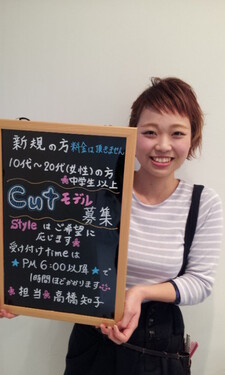 新規の方 料金は頂きません
10代〜20代(女性)の方
★中学生以上
Cutモデル
募集
Styleはご希望に
応じます★
受け付けtimeは
★PM 6:00以降★で
1時間ほどかかります
★担当★高橋知子